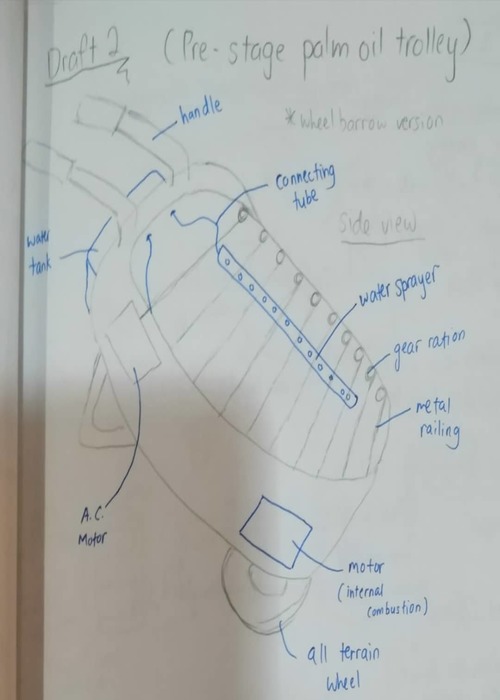 Draft 2 (Pre-stage palm oil trolley)
handle
*wheel barrow version
connecting
tube
Side view
water
tank
water sprayer
gear ration
metal
railing
A.C.
Motor
motor
(internal
combustion)
all terrain
wheel